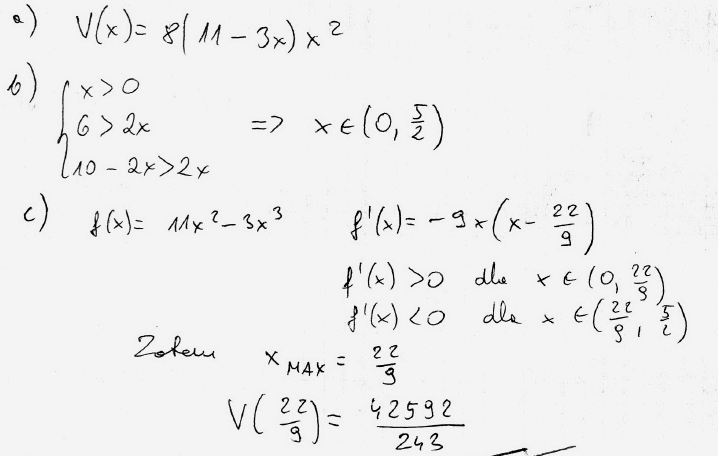 a) V(x) = 8(11 - 3x) x²
b) { x > 0
6 > 2x => x ∈ (0, 5/2)
10 - 2x > 2x
c) f(x) = 11x² - 3x³ f'(x) = -9x(x - 22/9)
f'(x) > 0 dla x ∈ (0, 22/9)
f'(x) < 0 dla x ∈ (22/9, 5/2)
Zatem x MAX = 22/9
V(22/9) = 42592/243